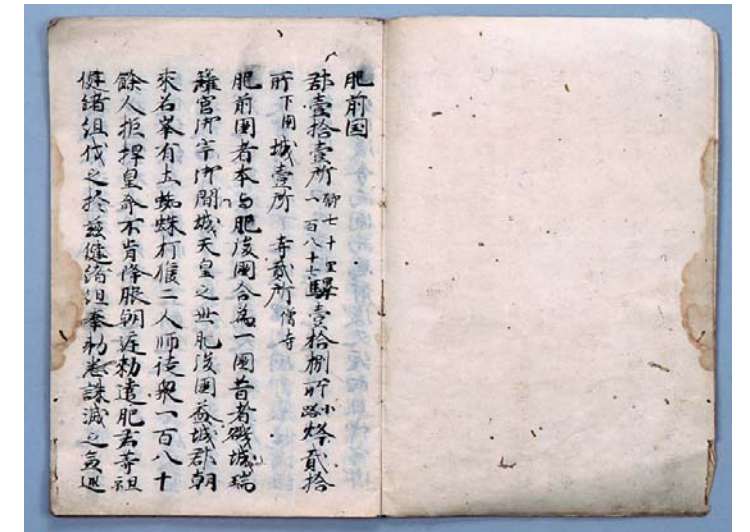 肥前国
郡壹拾壹所 郷七十里一百八十七 驛壹拾捌所 小路 烽貳拾
所 下国 城壹所 寺貳所 僧寺
肥前國者本与肥後國合為一國昔者磯城瑞
籬宮御宇御間城天皇之世肥後國益城郡朝
来名峯有土蜘蛛打猴二人師徒衆一百八十
餘人拒捍皇命不肯降服朝廷勅遣肥君等祖
健緒組伐之於茲健緒組奉勅悉誅滅之兼巡